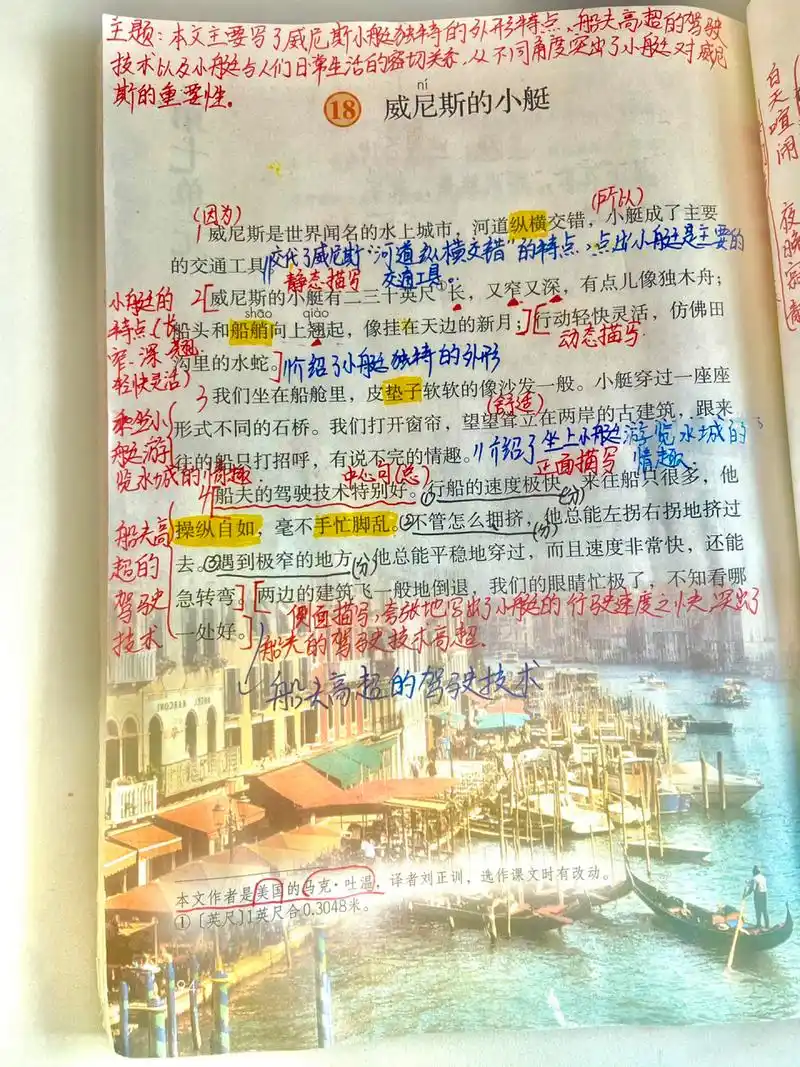 主题:本文主要写了威尼斯小艇独特的外形特点、船夫高超的驾驶
技术以及小艇与人们日常生活的密切关系,从不同角度突出了小艇对威尼
斯的重要性。
ní
18 威尼斯的小艇
(因为)
(所以)
1 威尼斯是世界闻名的水上城市,河道纵横交错,小艇成了主要
的交通工具。
∥交代了威尼斯“河道纵横交错”的特点,点出小艇是主要的
交通工具。
静态描写
2[威尼斯的小艇有二三十英尺①长,又窄又深,有点儿像独木舟;
shāo qiào
船头和船艄向上翘起,像挂在天边的新月;][行动轻快灵活,仿佛田
动态描写
沟里的水蛇。]
∥介绍了小艇独特的外形
小艇的
特点(长
窄、深、翘
轻快灵活)
3 我们坐在船舱里,皮垫子软软的像沙发一般。小艇穿过一座座
(舒适)
形式不同的石桥。我们打开窗帘,望望耸立在两岸的古建筑,跟来
往的船只打招呼,有说不完的情趣。
∥介绍了坐上小艇游览水城的
情趣
正面描写
乘坐小
艇游
览水城的情趣
中心句(总)
4[船夫的驾驶技术特别好。①行船的速度极快,来往船只很多,他
(分)
操纵自如,毫不手忙脚乱。②不管怎么拥挤,他总能左拐右拐地挤过
(分)
去。③遇到极窄的地方,他总能平稳地穿过,而且速度非常快,还能
(分)
急转弯。][两边的建筑飞一般地倒退,我们的眼睛忙极了,不知看哪
一处好。]
侧面描写,夸张地写出了小艇的行驶速度之快,突出了
船夫的驾驶技术高超。
船夫高
超的
驾驶
技术
船夫高超的驾驶技术
本文作者是美国的马克·吐温,译者刘正训,选作课文时有改动。
①〔英尺〕1英尺合0.3048米。
94
白天喧闹
夜晚